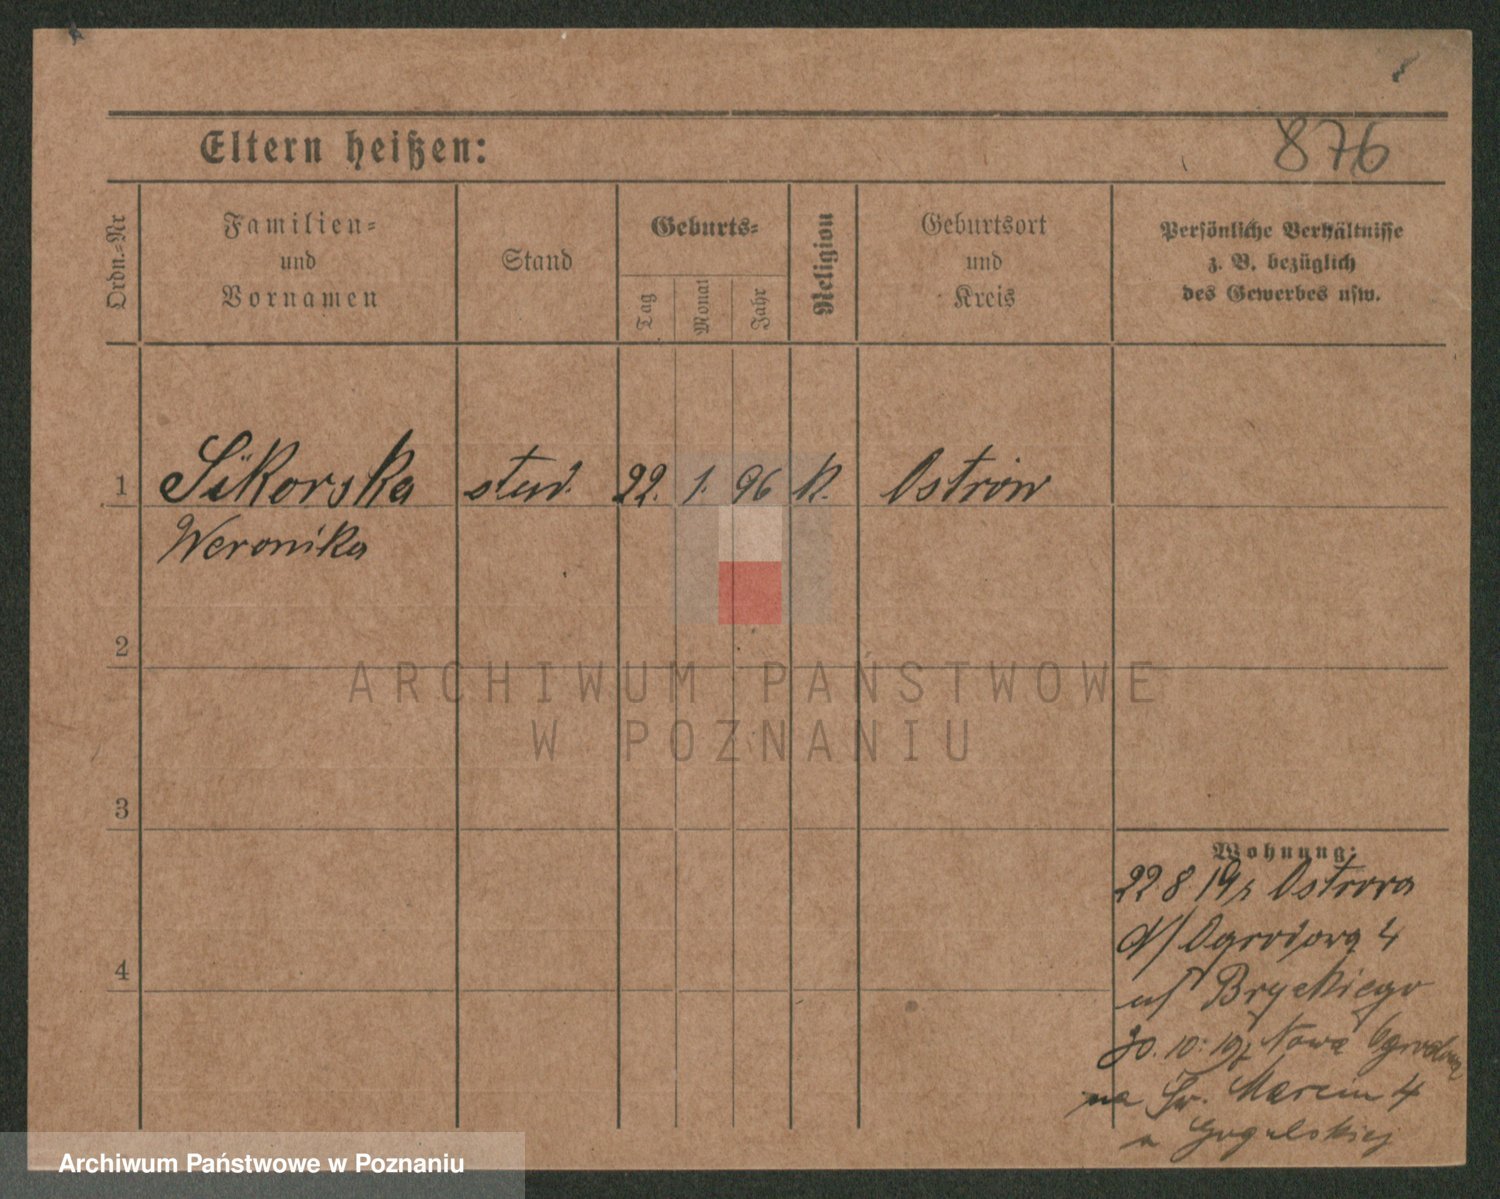 876
Eltern heißen:
Ordn.-Nr
Familien-
und
Vornamen
Stand
Geburts-
Tag
Monat
Jahr
Religion
Geburtsort
und
Kreis
Persönliche Verhältnisse
z. B. bezüglich
des Gewerbes usw.
1 Sikorska stud. 22. 1. 96 K. Ostrów
Weronika
2
ARCHIWUM PAŃSTWOWE
W POZNANIU
3
Wohnung:
22 8 19 z Ostrowa
Ogrodowa 4
Bryckiego
30. 10. 19 z Nowa Ogrodowa
4
na Św. Marcin 4
u Gogulskiej
Archiwum Państwowe w Poznaniu